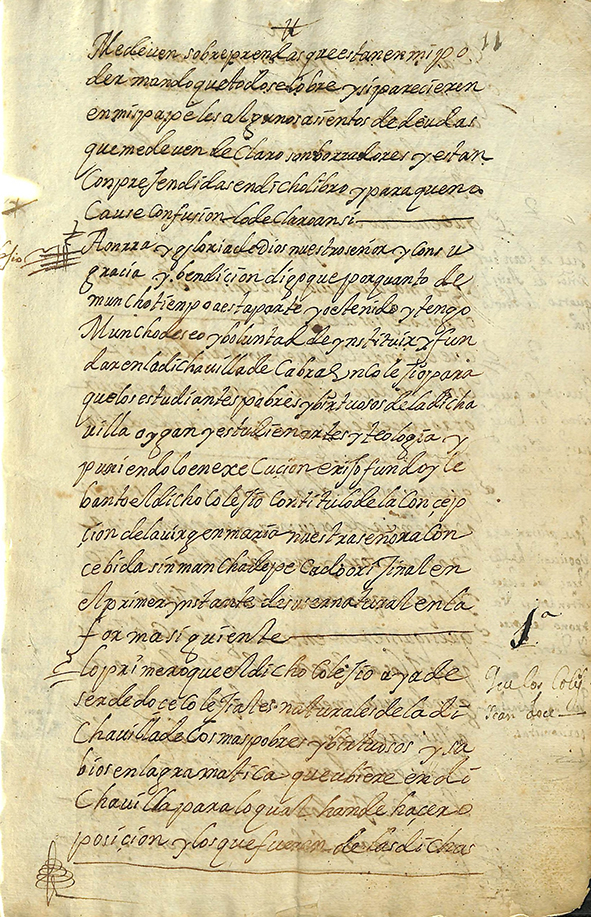 11
Me deven sobre prendas que estan en mi po
der mando que todo se cobre y si parecieren
en mis papeles algunos asientos de deudas
que me deven declaro son borradores y estan
conpreendidas en dicho libro y para que no
cause confusion lo declaro ansi
A onrra y gloria de Dios nuestro señor y con su
gracia y bendiçion digo que por quanto de
muncho tienpo a esta parte yo e tenido y tengo
muncho deseo y boluntad de ynstituir y fun
dar en la dicha villa de Cabra un colejio para
que los estudiantes pobres y birtuosos de la dicha
villa oygan y estudien artes y teologia y
puniendolo en execuçion erijo fundo y le
banto el dicho colejio con titulo de la Concep
çion de la uirgen maria nuestra señora con
cebida sin mancha de pecado orijinal en
el primer ynstante de su ser natural en la
forma siguiente
Lo primero que el dicho colejio aya de
ser de doce colejiales naturales de la di
cha villa de los mas pobres y birtuosos y sa
bios en la gramatica que ubiere en di
cha villa para lo qual han de hacer o
posiçion y los que fueren de las dichas
1ª
Que los colej
sean doce